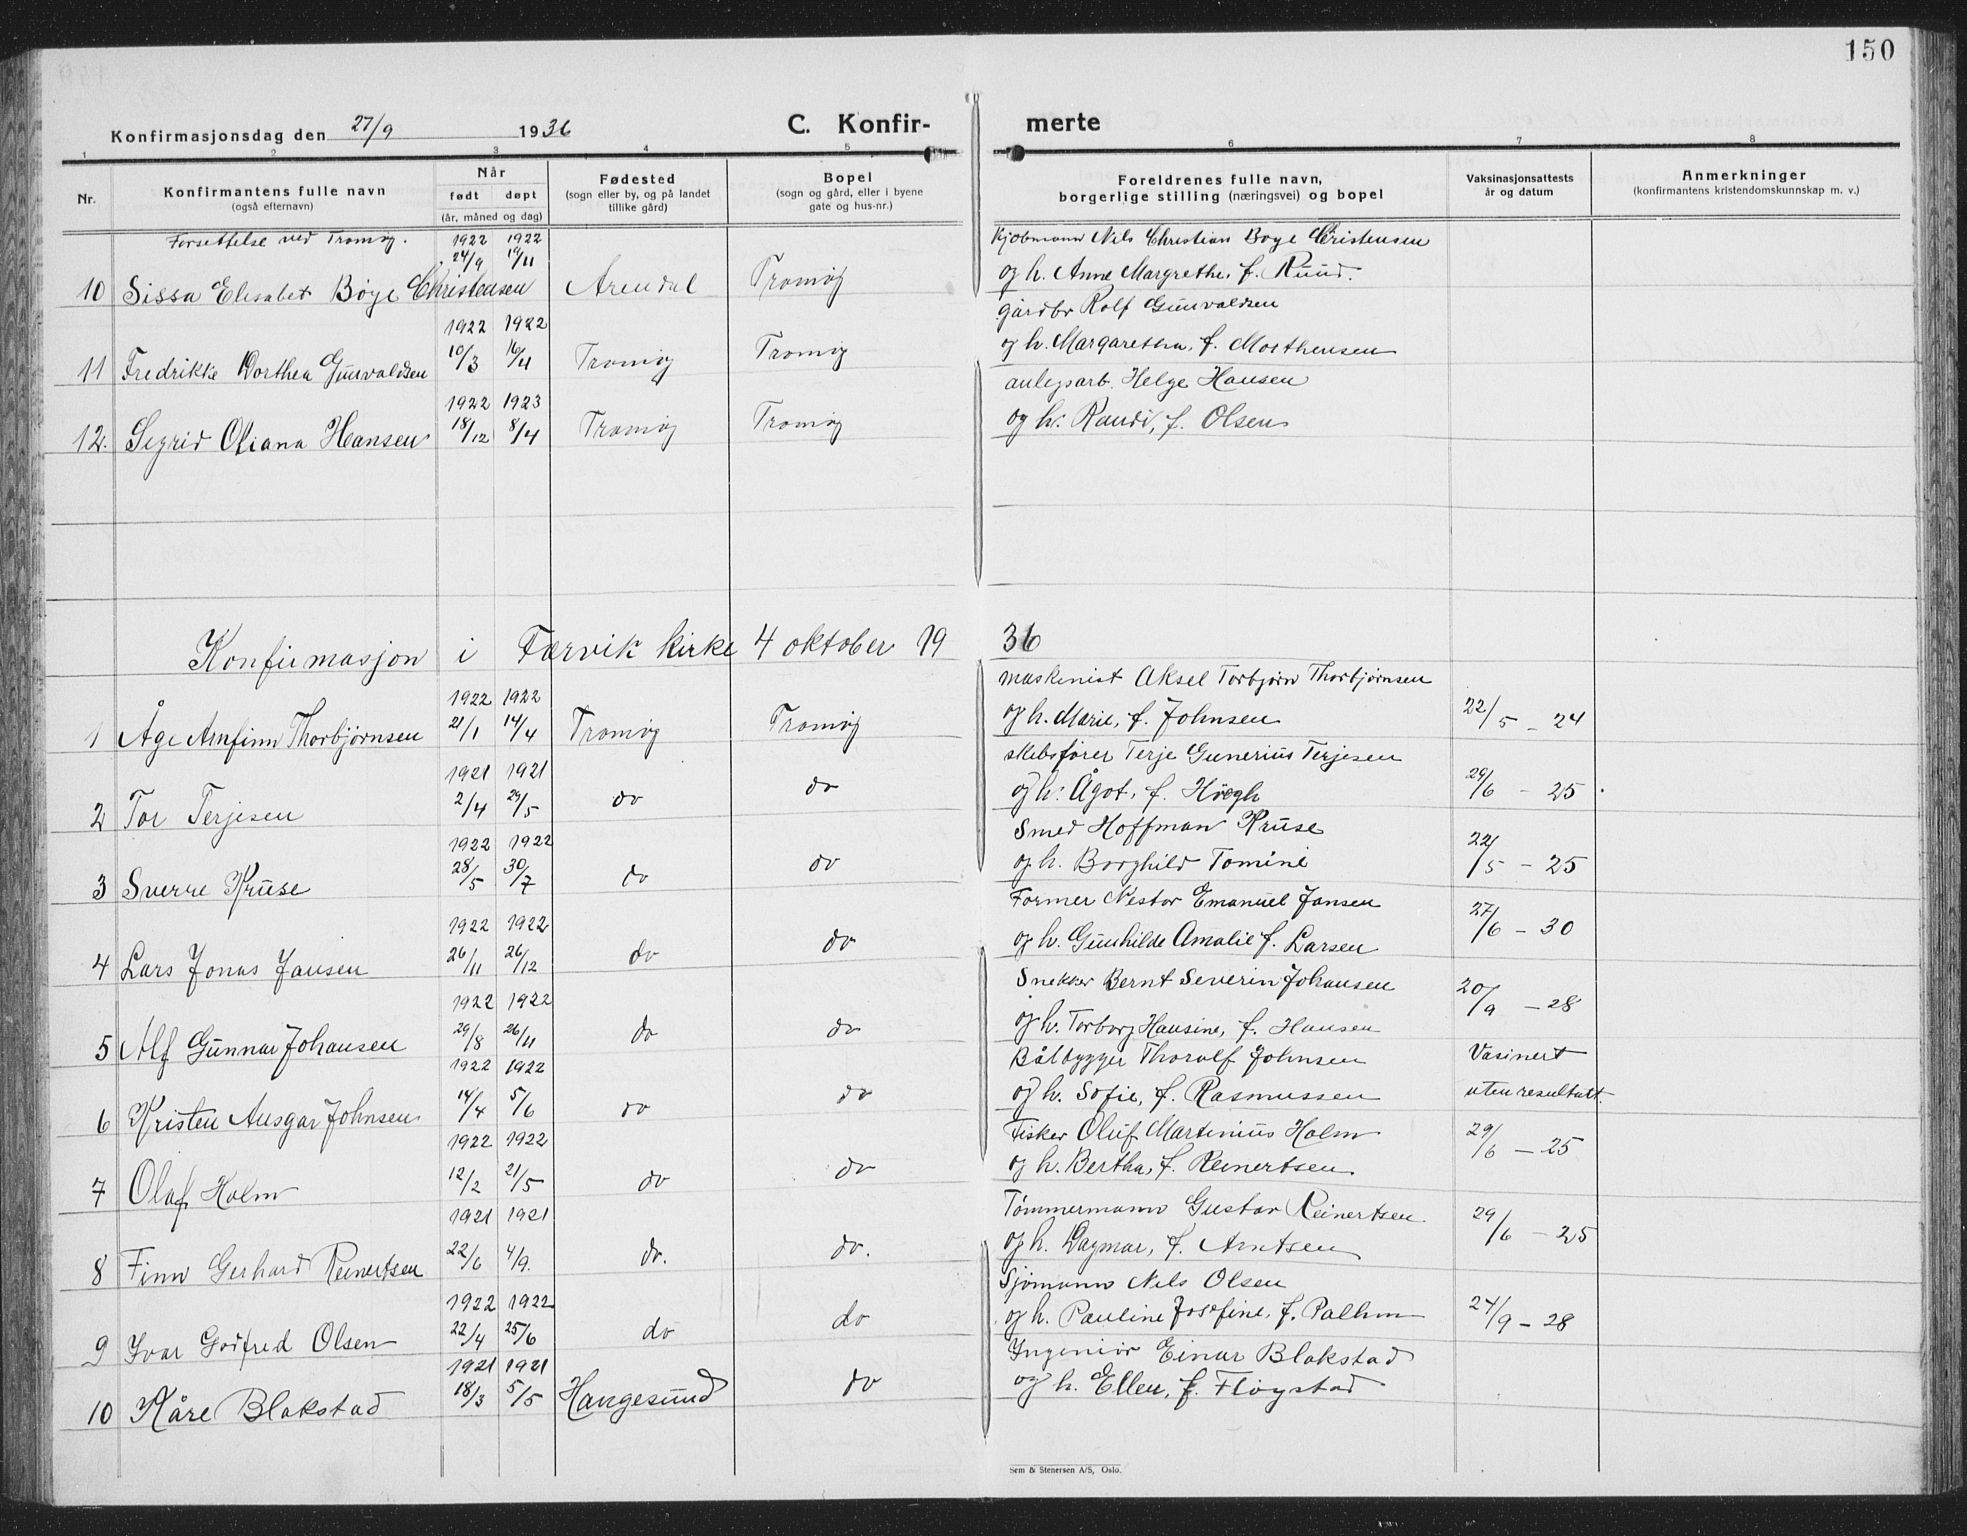 150
Konfirmasjonsdag den 27/9 1936 C. Konfirmerte
1 2 3 4 5 6 7 8
Nr. Konfirmantens fulle navn (også efternavn) Når født døpt (år, måned og dag) Fødested (sogn eller by, og på landet tillike gård) Bopel (sogn og gård, eller i byene gate og hus-nr.) Foreldrenes fulle navn, borgerlige stilling (næringsvei) og bopel Vaksinasjonsattests år og datum Anmerkninger (konfirmantens kristendomskunnskap m. v.)
Forsettelse ved Tromøy. 1922 1922 Kjøbmann Nils Christian Boye Christensen
10 Sissa Elisabet Bøye Christensen 24/9 19/11 Arendal Tromøy og h. Anne Margrethe, f. Ruud.
1922 1922 gårdbr Rolf Gunvaldsen
11 Fredrikke Dorthea Gunvaldsen 10/3 16/4 Tromøy Tromøy og h. Margaretha, f. Morthensen
1922 1923 anlegsarb. Helge Hansen
12. Sigrid Oliana Hansen 18/12 8/4 Tromøy Tromøy og h. Randi, f. Olsen
Konfirmasjon i Færvik kirke 4 oktober 1936
1922 1922 maskinist Aksel Torbjørn Thorbjørnsen
1 Åge Arnfinn Thorbjørnsen 21/1 14/4 Tromøy Tromøy og h. Marie, f. Johnsen 22/5 - 24
1921 1921 skibsfører Terje Gunerius Terjesen
2 Tor Terjesen 2/4 29/5 do do og h. Ågot, f. Höegh 29/6 - 25
1922 1922 Smed Hoffman Kruse
3 Sverre Kruse 28/5 30/7 do do og h. Borghild Tomine 22/5 - 25
1922 1922 Former Nestor Emanuel Jansen
4 Lars Jonas Jansen 26/11 26/12 do do og h. Gunhilde Amalie f. Larsen 27/6 - 30
1922 1922 Snekker Bernt Severin Johansen
5 Alf Gunnar Johansen 29/8 26/11 do do og h. Torborg Hansine, f. Hansen 20/9 - 28
1922 1922 Båtbygger Thoralf Johnsen Vasinert
6 Kristen Ansgar Johnsen 14/4 5/6 do do og h. Sofie, f. Rasmussen uten resultatt.
1922 1922 Fisker Oluf Martinius Holm
7 Olaf Holm 12/2 21/5 do do og h. Bertha, f. Reinertsen 29/6 - 25
1921 1921 Tømmermann Gustav Reinertsen
8 Finn Gerhard Reinertsen 22/6 4/9. do. do. og h. Dagmar, f. Arntsen 29/6 - 25
1922 1922 Sjømann Nils Olsen
9 Ivar Godfred Olsen 22/4 25/6 do do og h. Pauline Josefine, f. Palhm 24/9 - 28
1921 1921 Ingeniør Einar Blakstad
10 Kåre Blakstad 18/3 5/5 Haugesund do og h. Ellen, f. Fløystad
Sem & Stenersen A/S, Oslo.